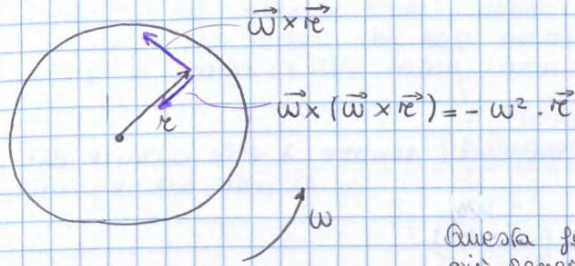 ω⃗ × r⃗
ω⃗ × (ω⃗ × r⃗) = - ω² · r⃗
r
ω
Questa